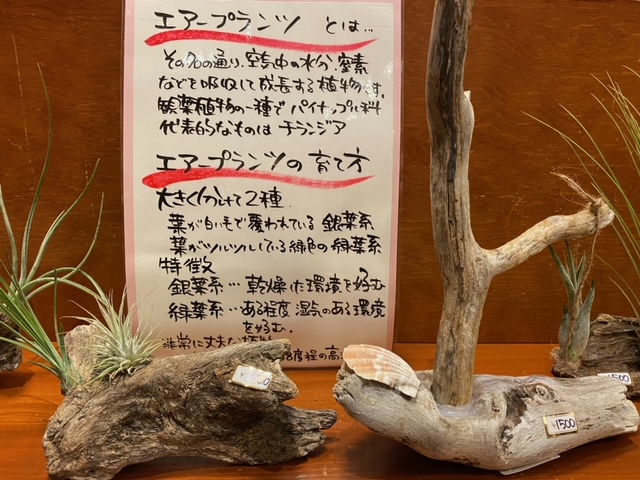 エアープランツ とは...
その名の通り、空気中の水分、窒素
などを吸収して成長する植物です。
観葉植物の一種で パイナップル科
代表的なものは チランジア
エアープランツの育て方
大きく分けて2種
葉が白い毛で覆われている 銀葉系
葉がツルツルしている緑色の 緑葉系
特徴
銀葉系…乾燥した環境を好む
緑葉系…ある程度 湿気のある環境
を好む。
非常に丈夫な植物
8度程の高
¥1500
1500